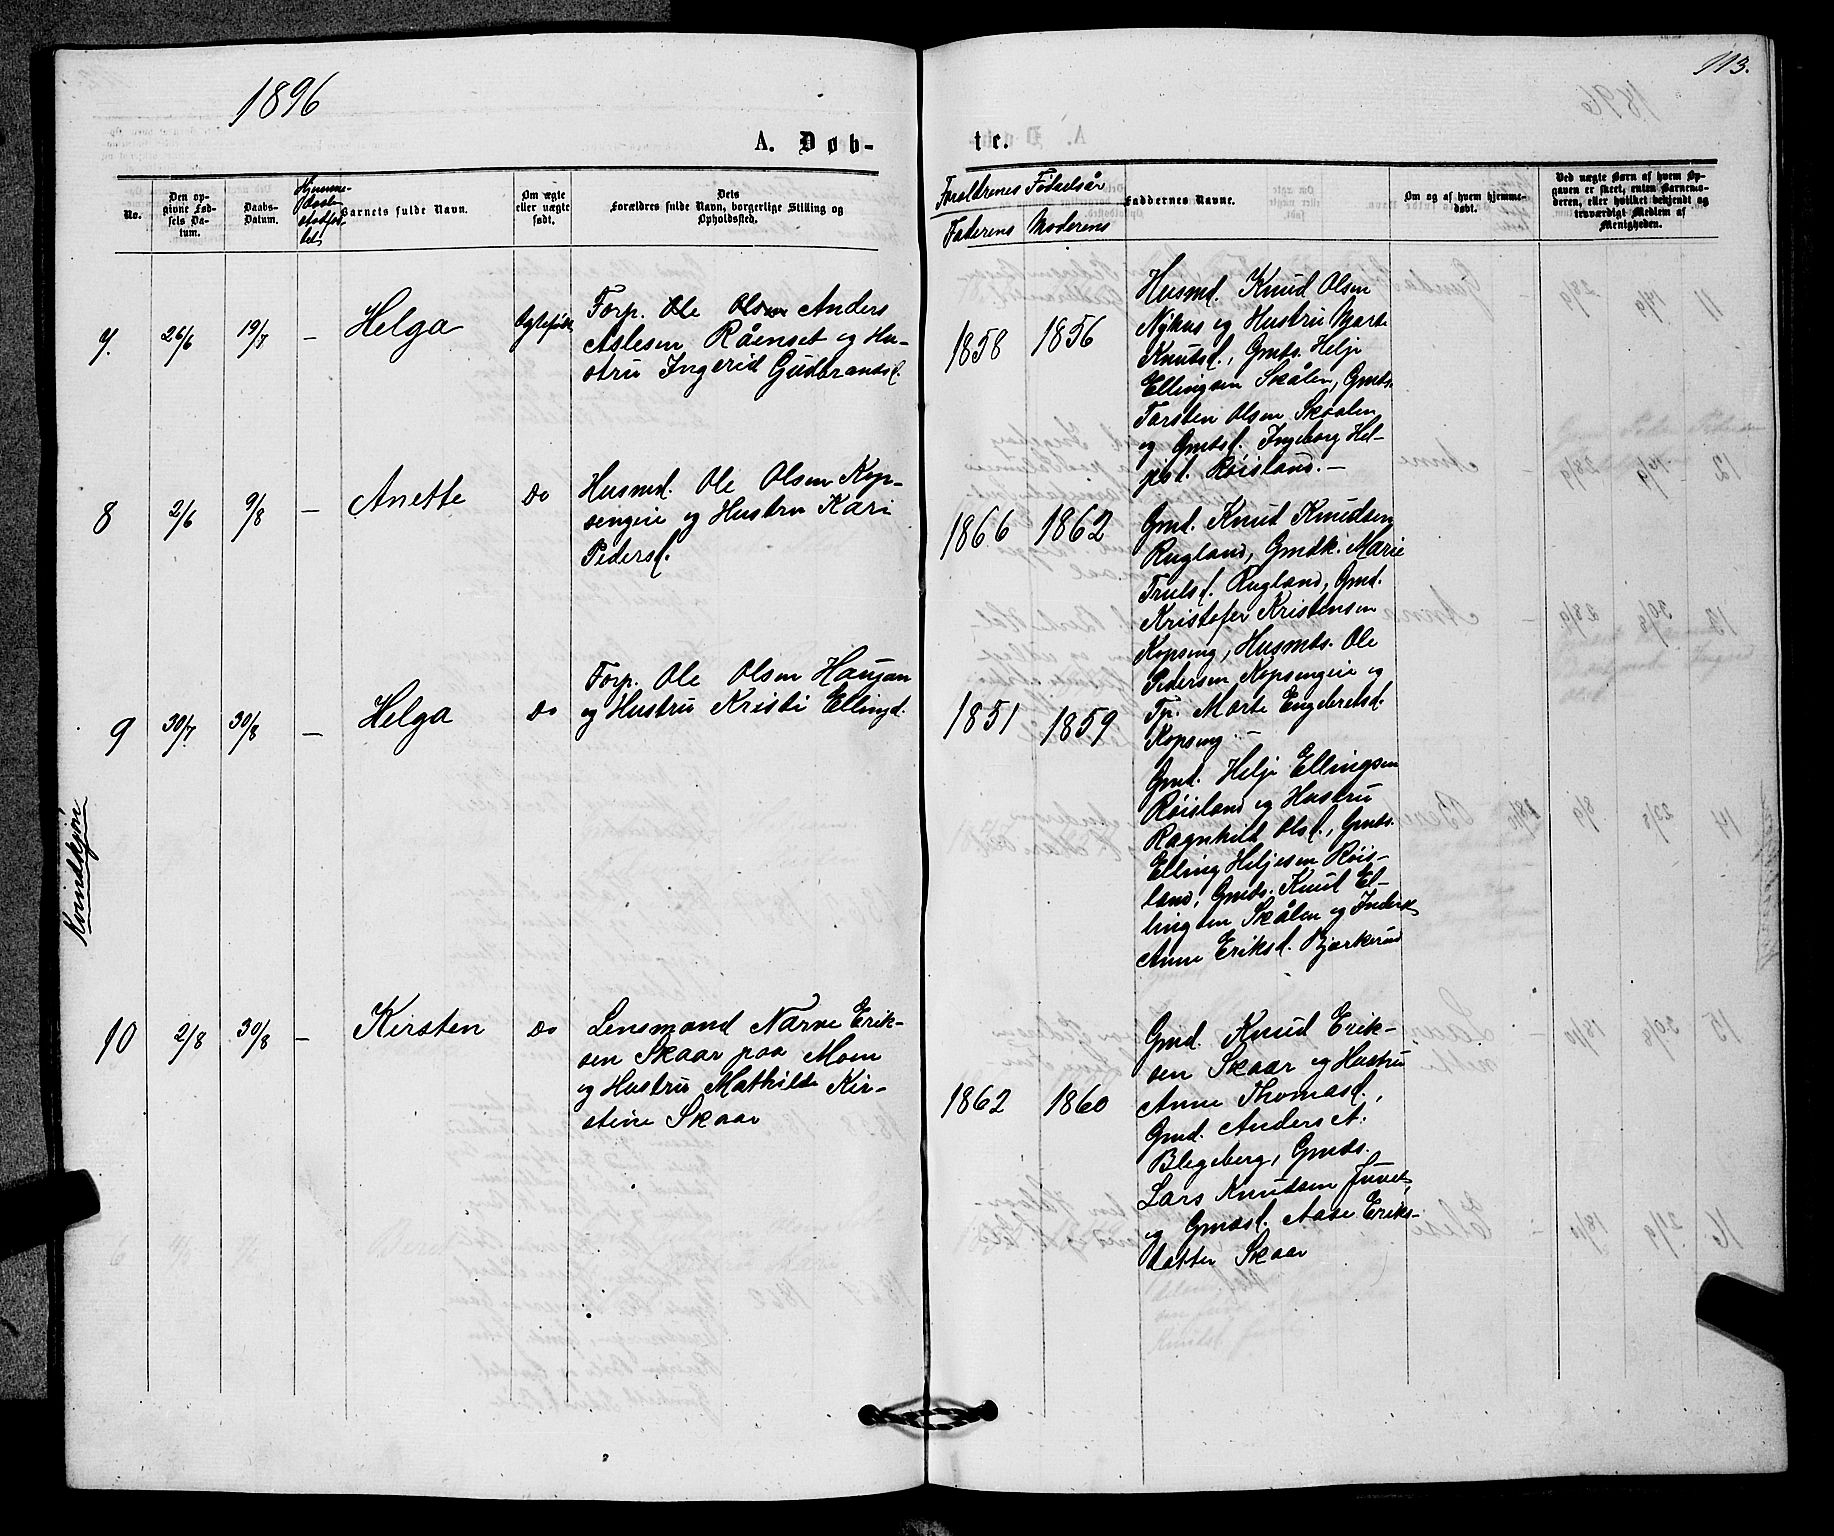 1896
113.
A. Døb-
te.
No.
Den op-
givne Fød-
sels Da-
tum.
Daabs-
Datum.
Hjemme-
Daab
stadfæs-
tet
Barnets fulde Navn.
Om ægte
eller uægte
født.
Dets
Forældres fulde Navn, borgerlige Stilling og
Opholdssted.
Forældrenes Fødselsår
Faderens Moderens
Faddernes Navne.
Om og af hvem hjemme-
døbt.
Ved uægte Børn af hvem Op-
gaven er skeet, enten Barnemo-
deren, eller hvilket bekjendt og
troværdigt Medlem af
Menigheden.
Kvindkjøn
7. 26/6 19/7 — Helga Ægtefødt
Forp. Ole Olsen Anders
Aslesen Råenset og Hu-
stru Ingerid Gudbrandsd.
1858 1856
Husmd. Knud Olsen
Nyhus og Hustru Marte
Knutsd., Gmds. Helje
Ellingsen Skålen, Gmds.
Torsten Olsen Skaalen
og Gmdsd. Ingeborg Hel-
jesd. Røisland. —
8 2/6 9/8 — Anette Do
Husmd. Ole Olsen Kop-
sengeie og Hustru Kari
Pedersd.
1866 1862
Gmd. Knut Knudsen
Rugland, Gmdk. Marie
Trulsd. Rugland, Gmd.
Kristofer Kristensen
Kopseng, Husmds. Ole
Pedersen Kopsengeie og
Tp. Marte Engebretsd.
Kopseng. —
9 30/7 30/8 — Helga Do
Forp. Ole Olsen Haujan
og Hustru Kristi Ellingd.
1851 1859
Gmd. Helje Ellingsen
Røisland og Hustru
Ragnhild Olsd., Gmds.
Elling Heljesen Røis-
land, Gmds. Knut El-
lingsen Skålen og Inderst
Anne Eriksd. Bjørkerud
10 2/8 30/8 — Kirsten Do
Lensmand Narve Erik-
sen Skaar paa Moen
og Hustru Mathilde Kir-
stine Skaar
1862 1860
Gmd. Knud Erik-
sen Skaar og Hustru
Anne Thomasd.,
Gmd. Anders A.
Blegeberg, Gmds.
Lars Knudsen Juvet,
og Gmdsd. Aase Eriks-
datter Skaar